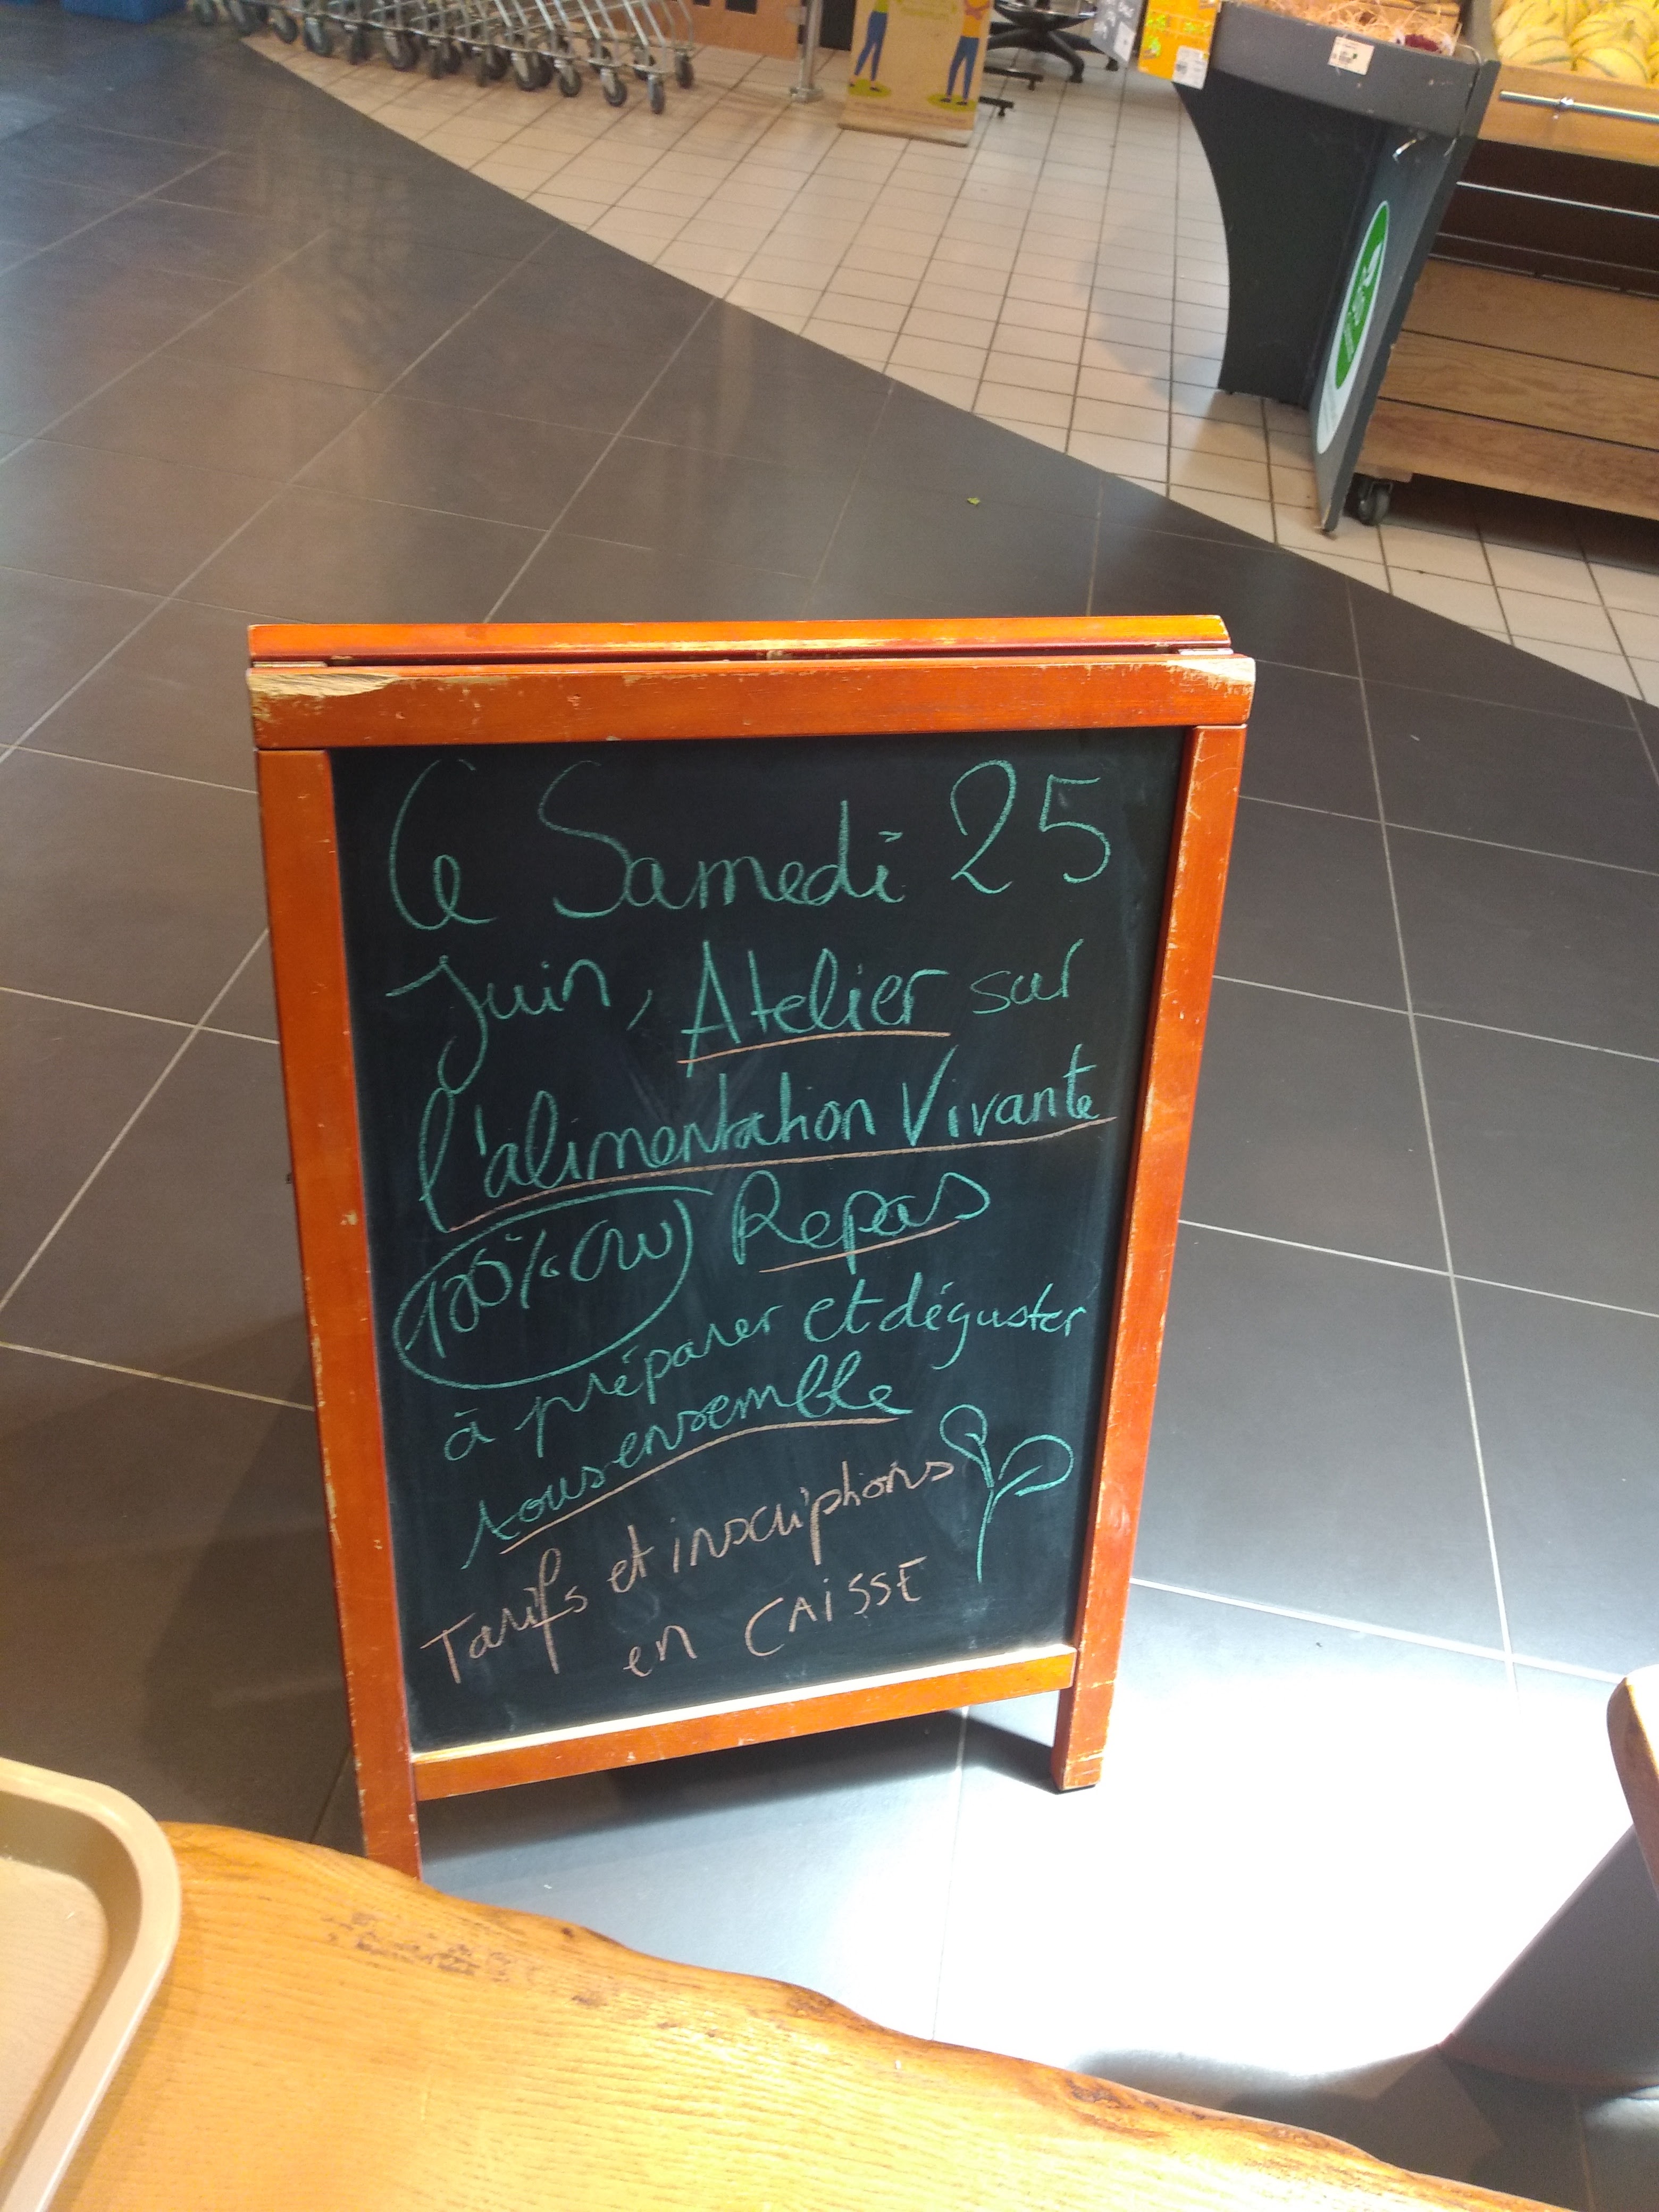 Ce Samedi 25
Juin, Atelier sur
l'alimentation Vivante
(100% cru) Repas
à préparer et déguster
tous ensemble
Tarifs et inscriptions
en CAISSE